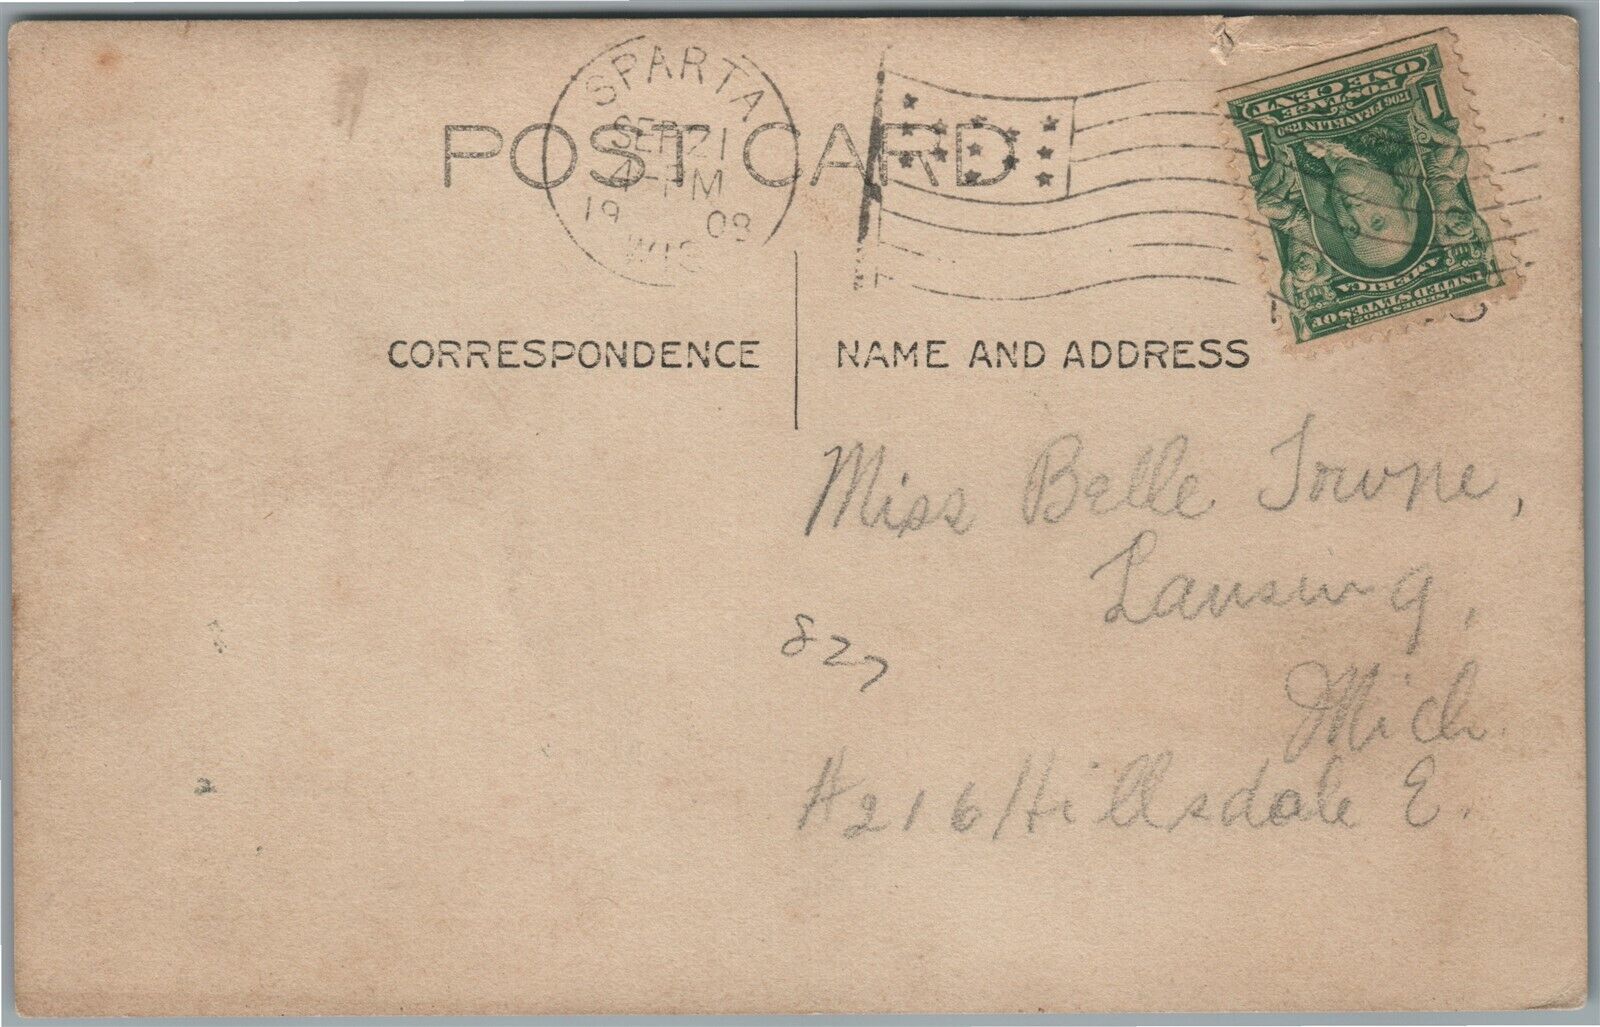 SPARTA
SEP 21
4-PM
1908
WIS
POST CARD
1 POSTAGE 1
ONE CENT
1706 FRANKLIN 1790
SERIES 1902
UNITED STATES OF
AMERICA
CORRESPONDENCE
NAME AND ADDRESS
Miss Belle Towne,
Lansing,
827
Mich.
#216 Hillsdale E.
2